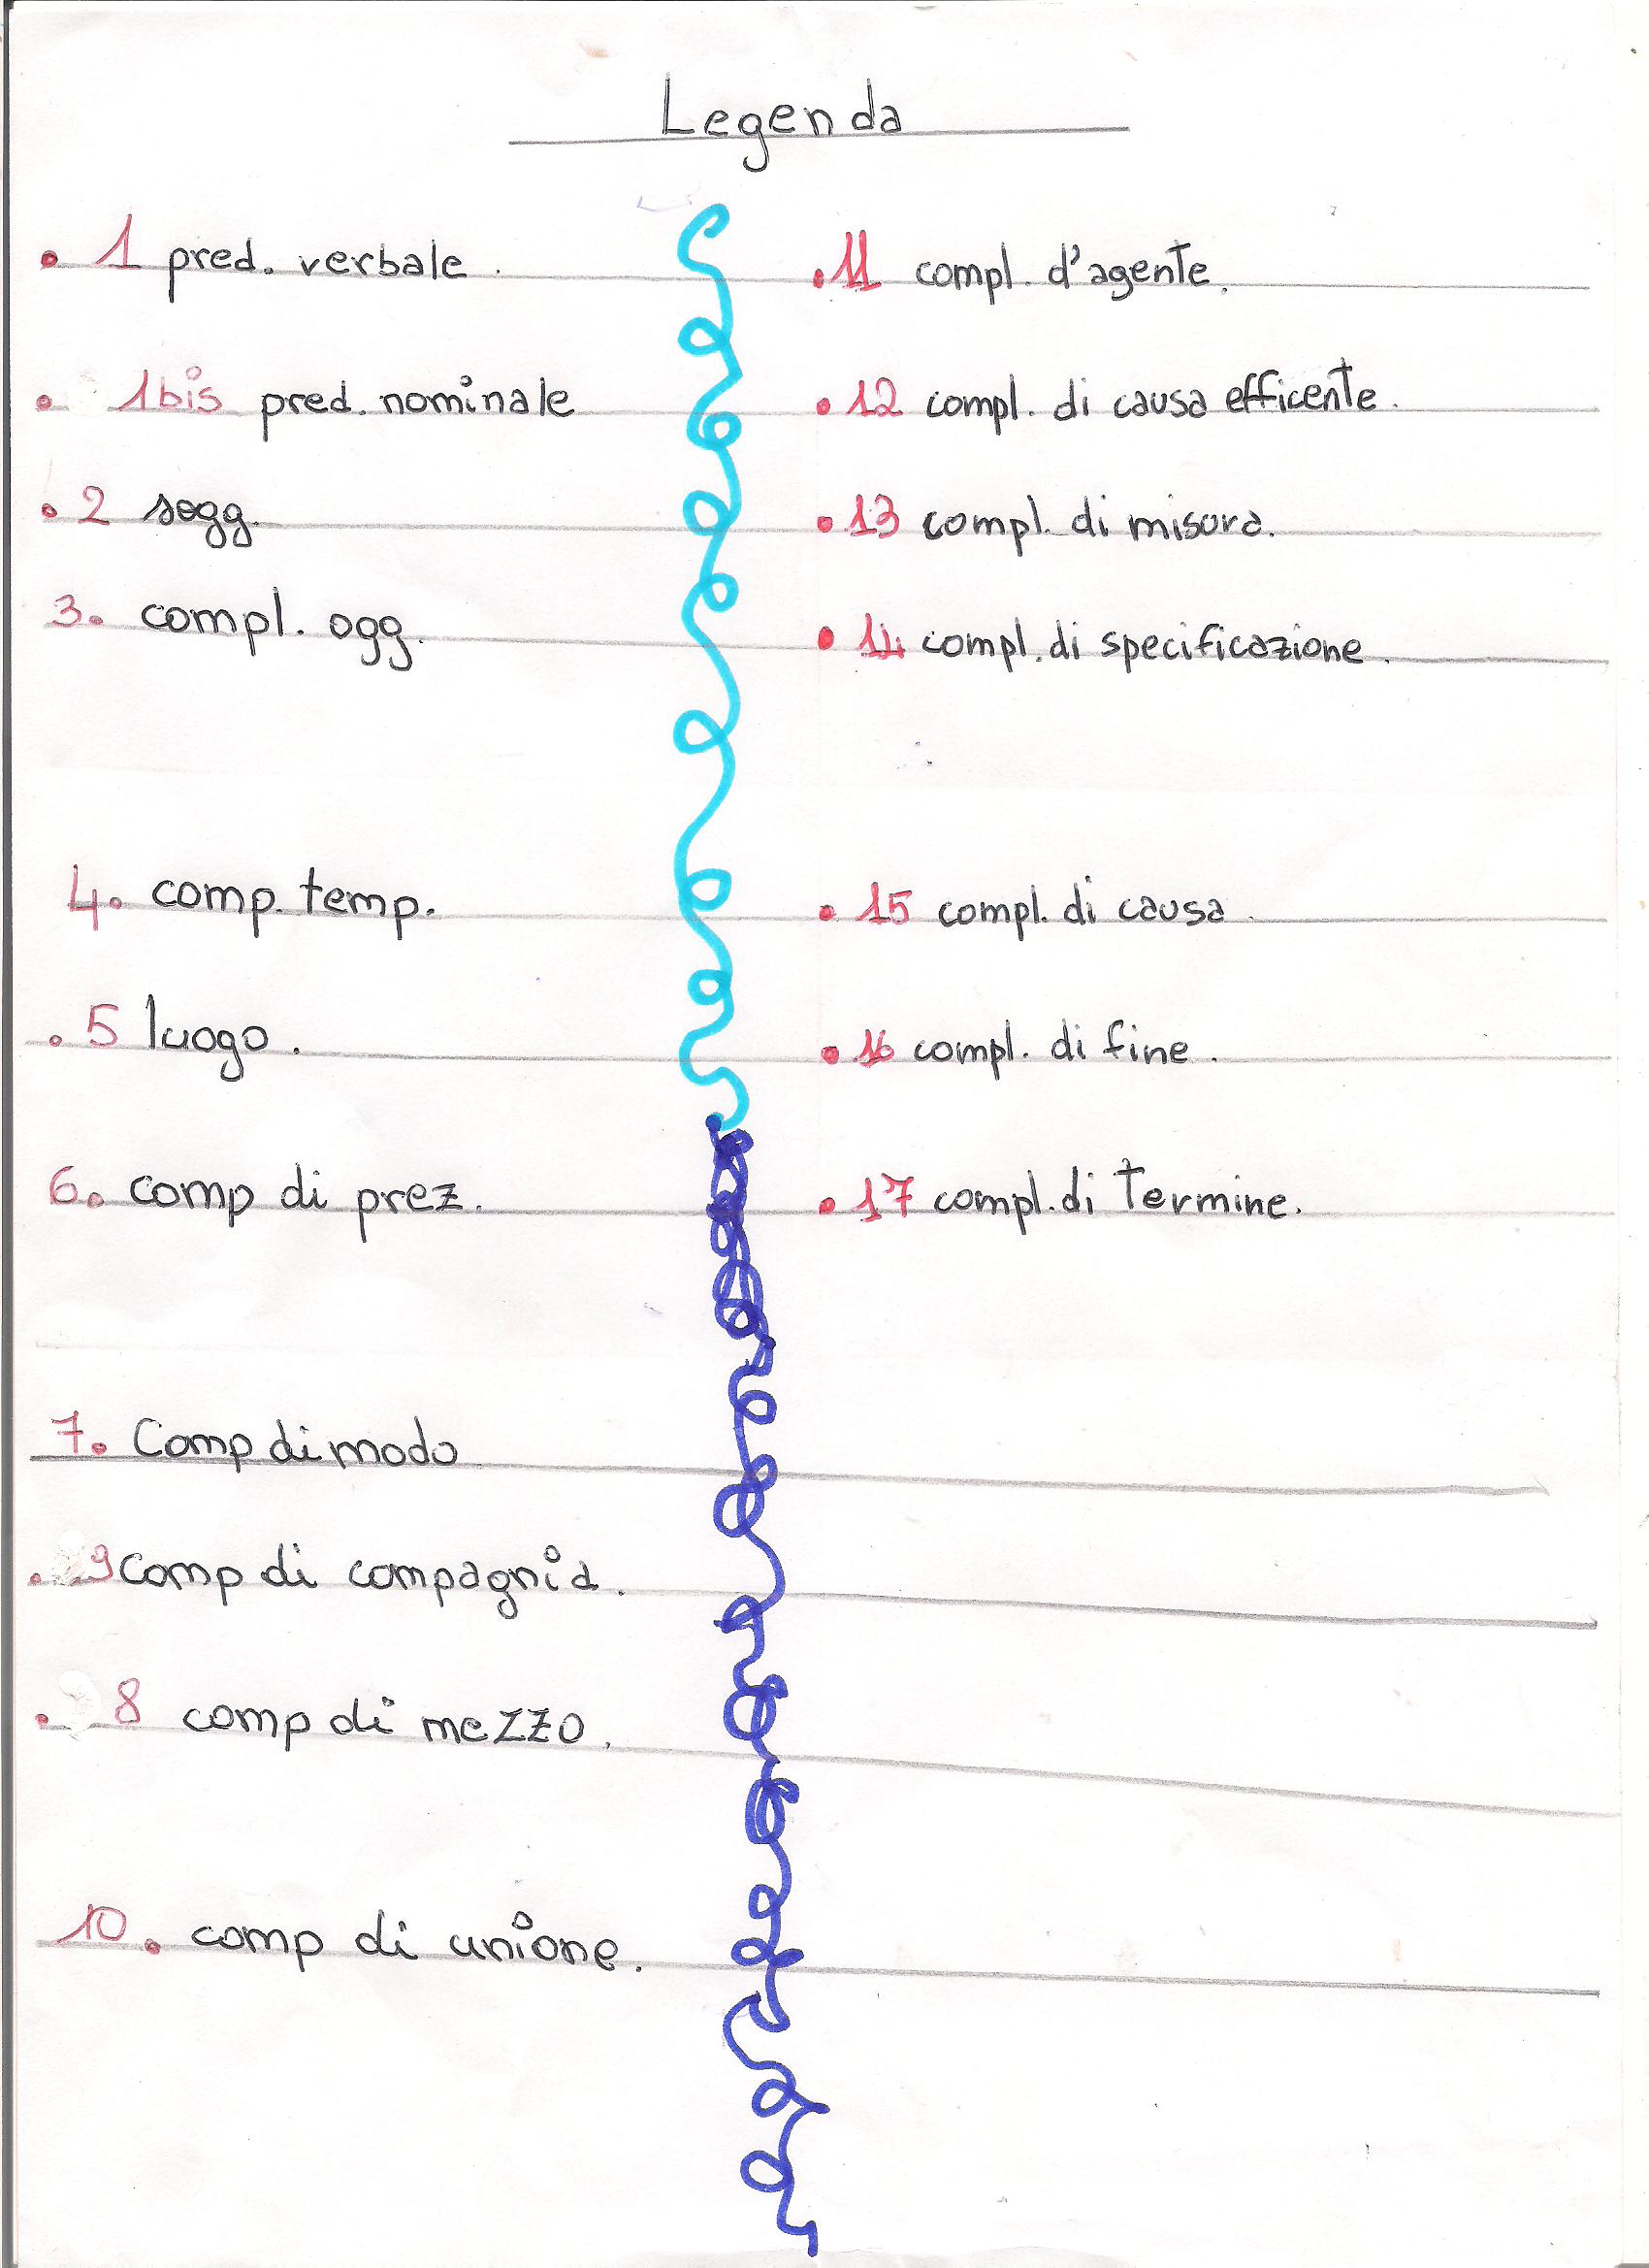 Legenda
• 1 pred. verbale.
• 1bis pred. nominale
• 2 sogg.
3. compl. ogg.
4. comp. temp.
. 5 luogo.
6. comp di prez.
7. Comp di modo
. 9 comp di compagnia.
. 8 comp di mezzo.
10. comp di unione.
• 11 compl. d'agente.
• 12 compl. di causa efficente.
• 13 compl. di misura.
• 14 compl. di specificazione.
• 15 compl. di causa.
• 16 compl. di fine.
• 17 compl. di termine.